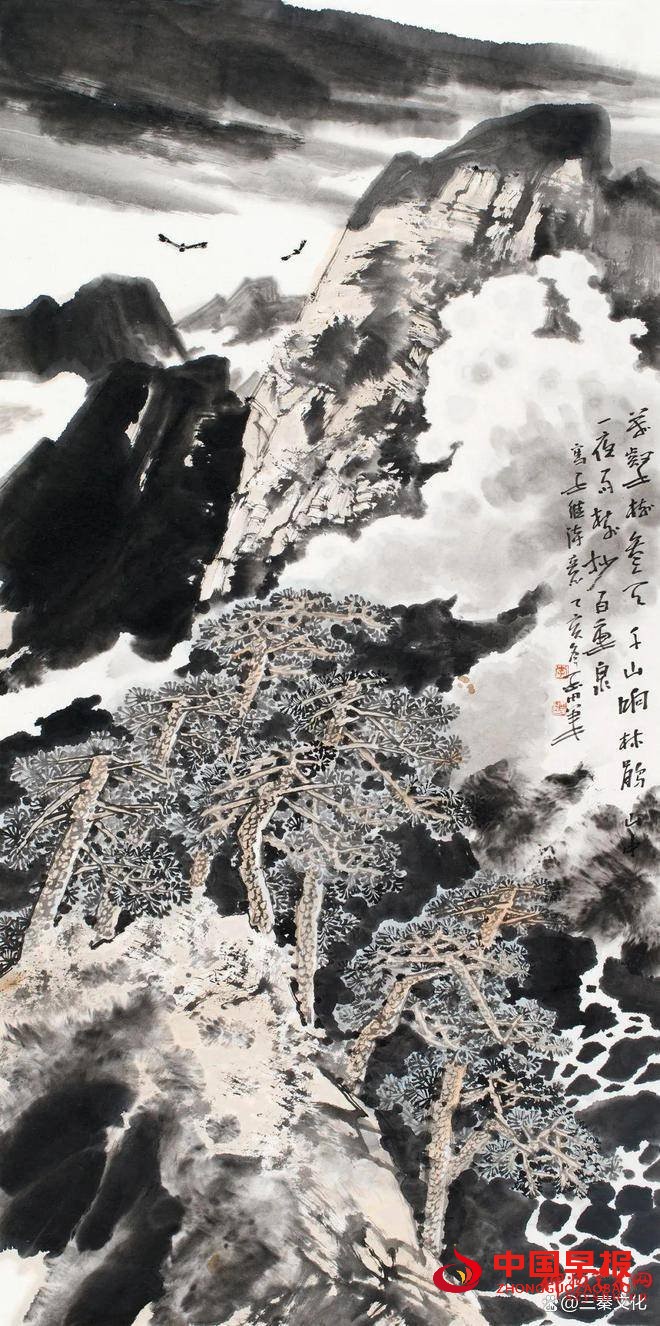 萬壑樹參天千山响杜鹃山中
一夜雨樹杪百重泉
寫王維詩意乙亥冬
中国早报
ZHONGGUOZAOBAO
@三秦文化